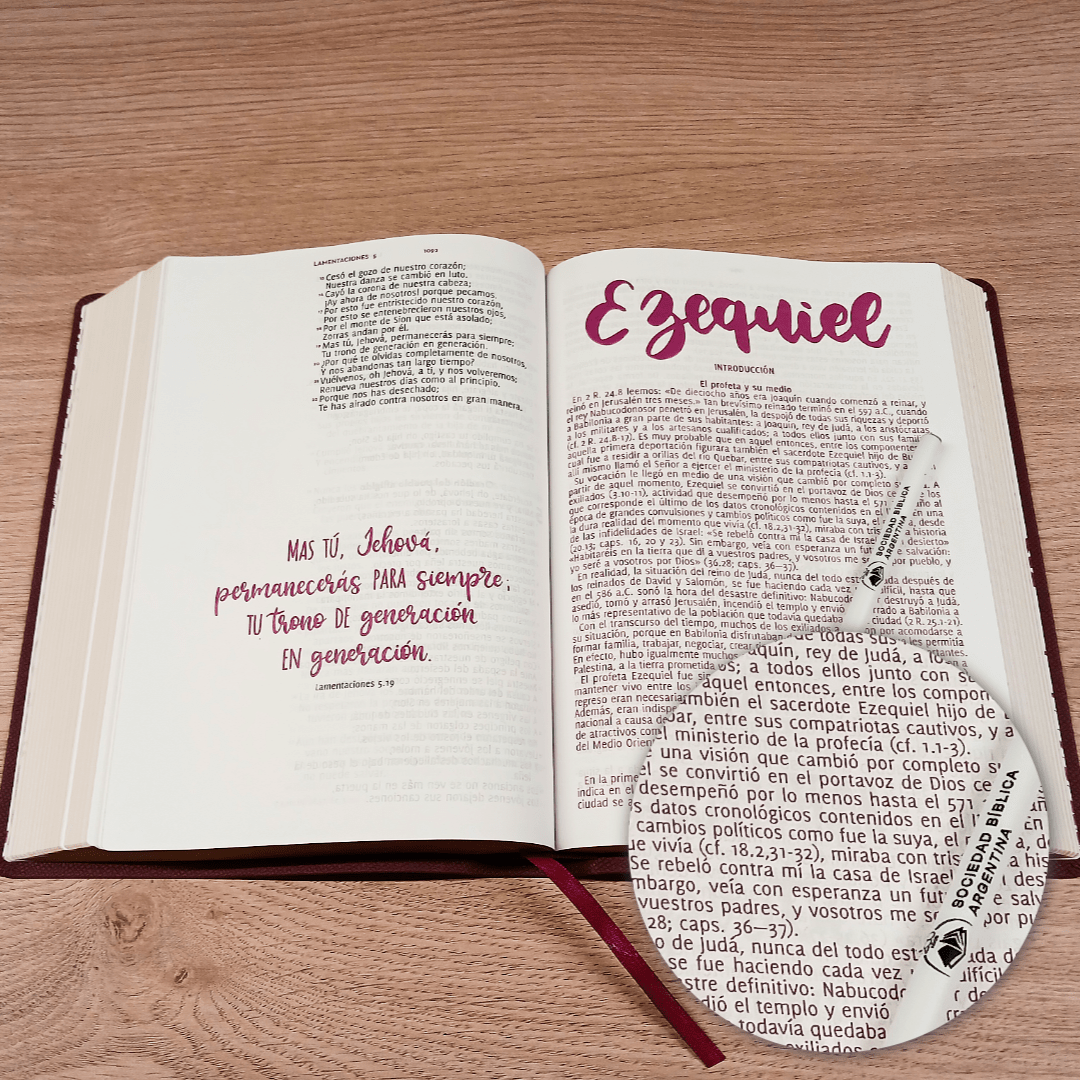 LAMENTACIONES 5
1092
15 Cesó el gozo de nuestro corazón;
Nuestra danza se cambió en luto.
16 Cayó la corona de nuestra cabeza;
¡Ay ahora de nosotros! porque pecamos.
17 Por esto fue entristecido nuestro corazón,
Por esto se entenebrecieron nuestros ojos,
18 Por el monte de Sion que está asolado;
Zorras andan por él.
19 Mas tú, Jehová, permanecerás para siempre;
Tu trono de generación en generación.
20 ¿Por qué te olvidas completamente de nosotros,
Y nos abandonas tan largo tiempo?
21 Vuélvenos, oh Jehová, a ti, y nos volveremos;
Renueva nuestros días como al principio.
22 Porque nos has desechado;
Te has airado contra nosotros en gran manera.
MAS TÚ, Jehová,
permanecerás PARA siempre;
TU trono DE generación
EN generación.
Lamentaciones 5.19
Ezequiel
INTRODUCCIÓN
El profeta y su medio
En 2 R. 24.8 leemos: «De dieciocho años era Joaquín cuando comenzó a reinar, y
reinó en Jerusalén tres meses.» Tan brevísimo reinado terminó en el 597 a.C., cuando
el rey Nabucodonosor penetró en Jerusalén, la despojó de todas sus riquezas y deportó
a Babilonia a gran parte de sus habitantes: a Joaquín, rey de Judá, a los aristócratas,
a los militares y a los artesanos cualificados; a todos ellos junto con sus
(cf. 2 R. 24.8-17). Es muy probable que en aquel entonces, entre los componentes
aquella primera deportación figurara también el sacerdote Ezequiel hijo de
cual fue a residir a orillas del río Quebar, entre sus compatriotas cautivos, y a
allí mismo llamó el Señor a ejercer el ministerio de la profecía (cf. 1.1-3).
Su vocación le llegó en medio de una visión que cambió por completo A
partir de aquel momento, Ezequiel se convirtió en el portavoz de Dios los
exiliados (3.10-11), actividad que desempeñó por lo menos hasta el 571 al
que corresponde el último de los datos cronológicos contenidos en el En una
época de grandes convulsiones y cambios políticos como fue la suya, el desde
la dura realidad del momento que vivía (cf. 18.2,31-32), miraba con historia
de las infidelidades de Israel: «Se rebeló contra mí la casa de Israel desierto»
(20.13; caps. 16, 20 y 23). Sin embargo, veía con esperanza un salvación:
«Habitaréis en la tierra que di a vuestros padres, y vosotros me por pueblo, y
yo seré a vosotros por Dios» (36.28; caps. 36—37).
En realidad, la situación del reino de Judá, nunca del todo después de
los reinados de David y Salomón, se fue haciendo cada vez hasta que
en el 586 a.C. sonó la hora del desastre definitivo: destruyó a Judá,
asedió, tomó y arrasó Jerusalén, incendió el templo y envió a Babilonia
lo más representativo de la población que todavía quedaba ciudad (2 R. 25.1-21).
Con el transcurso del tiempo, muchos de los exiliados por acomodarse a
su situación, porque en Babilonia disfrutaban les permitía
formar familia, trabajar, negociar,
En efecto, hubo igualmente muchos
Palestina, a la tierra prometida
El profeta Ezequiel fue
mantener vivo entre los
regreso eran
Además, eran
nacional a causa
de atractivos
del Medio
En la
indica en el
ciudad se
SOCIEDAD BIBLICA
ARGENTINA
de todas sus
rey de Judá, a
a todos ellos junto con
aquel entonces, entre los
el sacerdote Ezequiel hijo de
entre sus compatriotas cautivos, y a
el ministerio de la profecía (cf. 1.1-3).
una visión que cambió por completo
el se convirtió en el portavoz de Dios
desempeñó por lo menos hasta el 571
datos cronológicos contenidos en el En
cambios políticos como fue la suya, el
vivía (cf. 18.2,31-32), miraba con
Se rebeló contra mí la casa de Israel
veía con esperanza un
vuestros padres, y vosotros me por
28; caps. 36—37).
de Judá, nunca del todo
se fue haciendo cada vez
definitivo:
el templo y envió
todavía quedaba
exiliados
SOCIEDAD BIBLICA
ARGENTINA